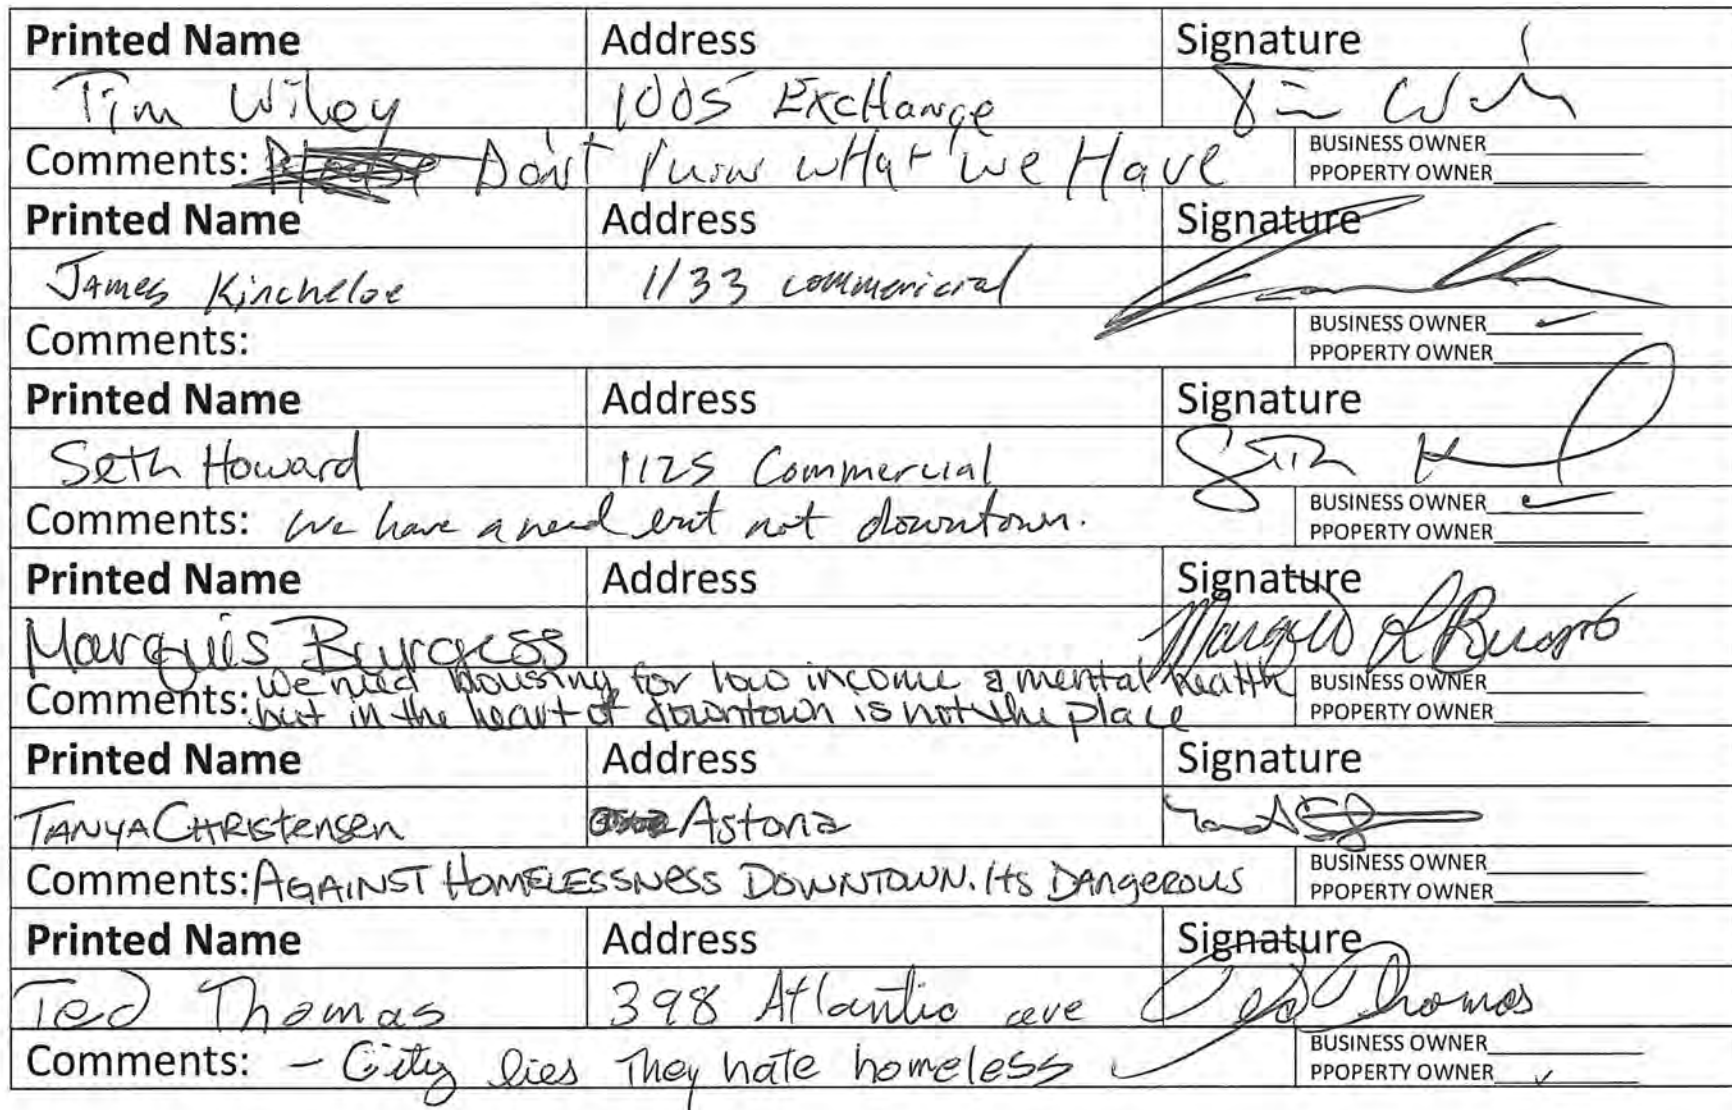 Printed Name Address Signature
Tim Wiley 1005 ExcHange Tim
Comments: Don't ruin wHat we Have BUSINESS OWNER
PPOPERTY OWNER
Printed Name Address Signature
James Kincheloe 1133 commericial
Comments: BUSINESS OWNER ✓
PPOPERTY OWNER
Printed Name Address Signature
Seth Howard 1125 Commercial Seth H
Comments: We have a need but not downtown. BUSINESS OWNER ✓
PPOPERTY OWNER
Printed Name Address Signature
Marquis Burgess Marquis L Burgess
Comments: we need housing for low income & mental health BUSINESS OWNER
but in the heart of downtown is not the place PPOPERTY OWNER
Printed Name Address Signature
TANYA CHRistensen Astoria
Comments: AGAINST HOMELESSNESS DOWNTOWN. Its DANgeROUS BUSINESS OWNER
PPOPERTY OWNER
Printed Name Address Signature
Ted Thomas 398 Atlantic ave Ted Thomas
Comments: - City lies They hate homeless BUSINESS OWNER
PPOPERTY OWNER ✓